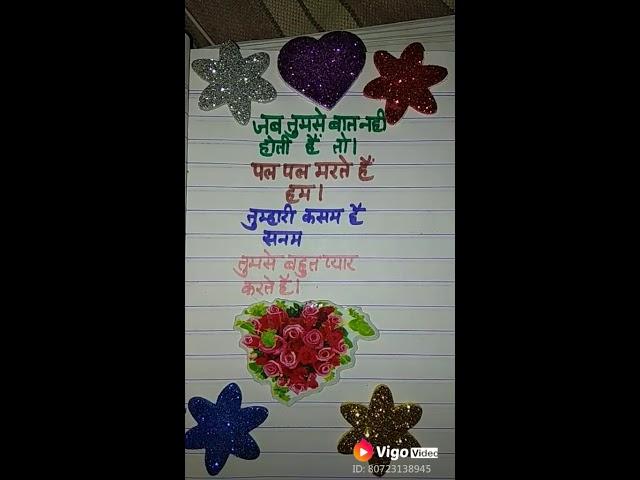 जब तुमसे बात नही
होती हैं तो।
पल पल मरते हैं
हम।
तुम्हारी कसम है
सनम
तुमसे बहुत प्यार
करते है।
Vigo Video
ID: 80723138945